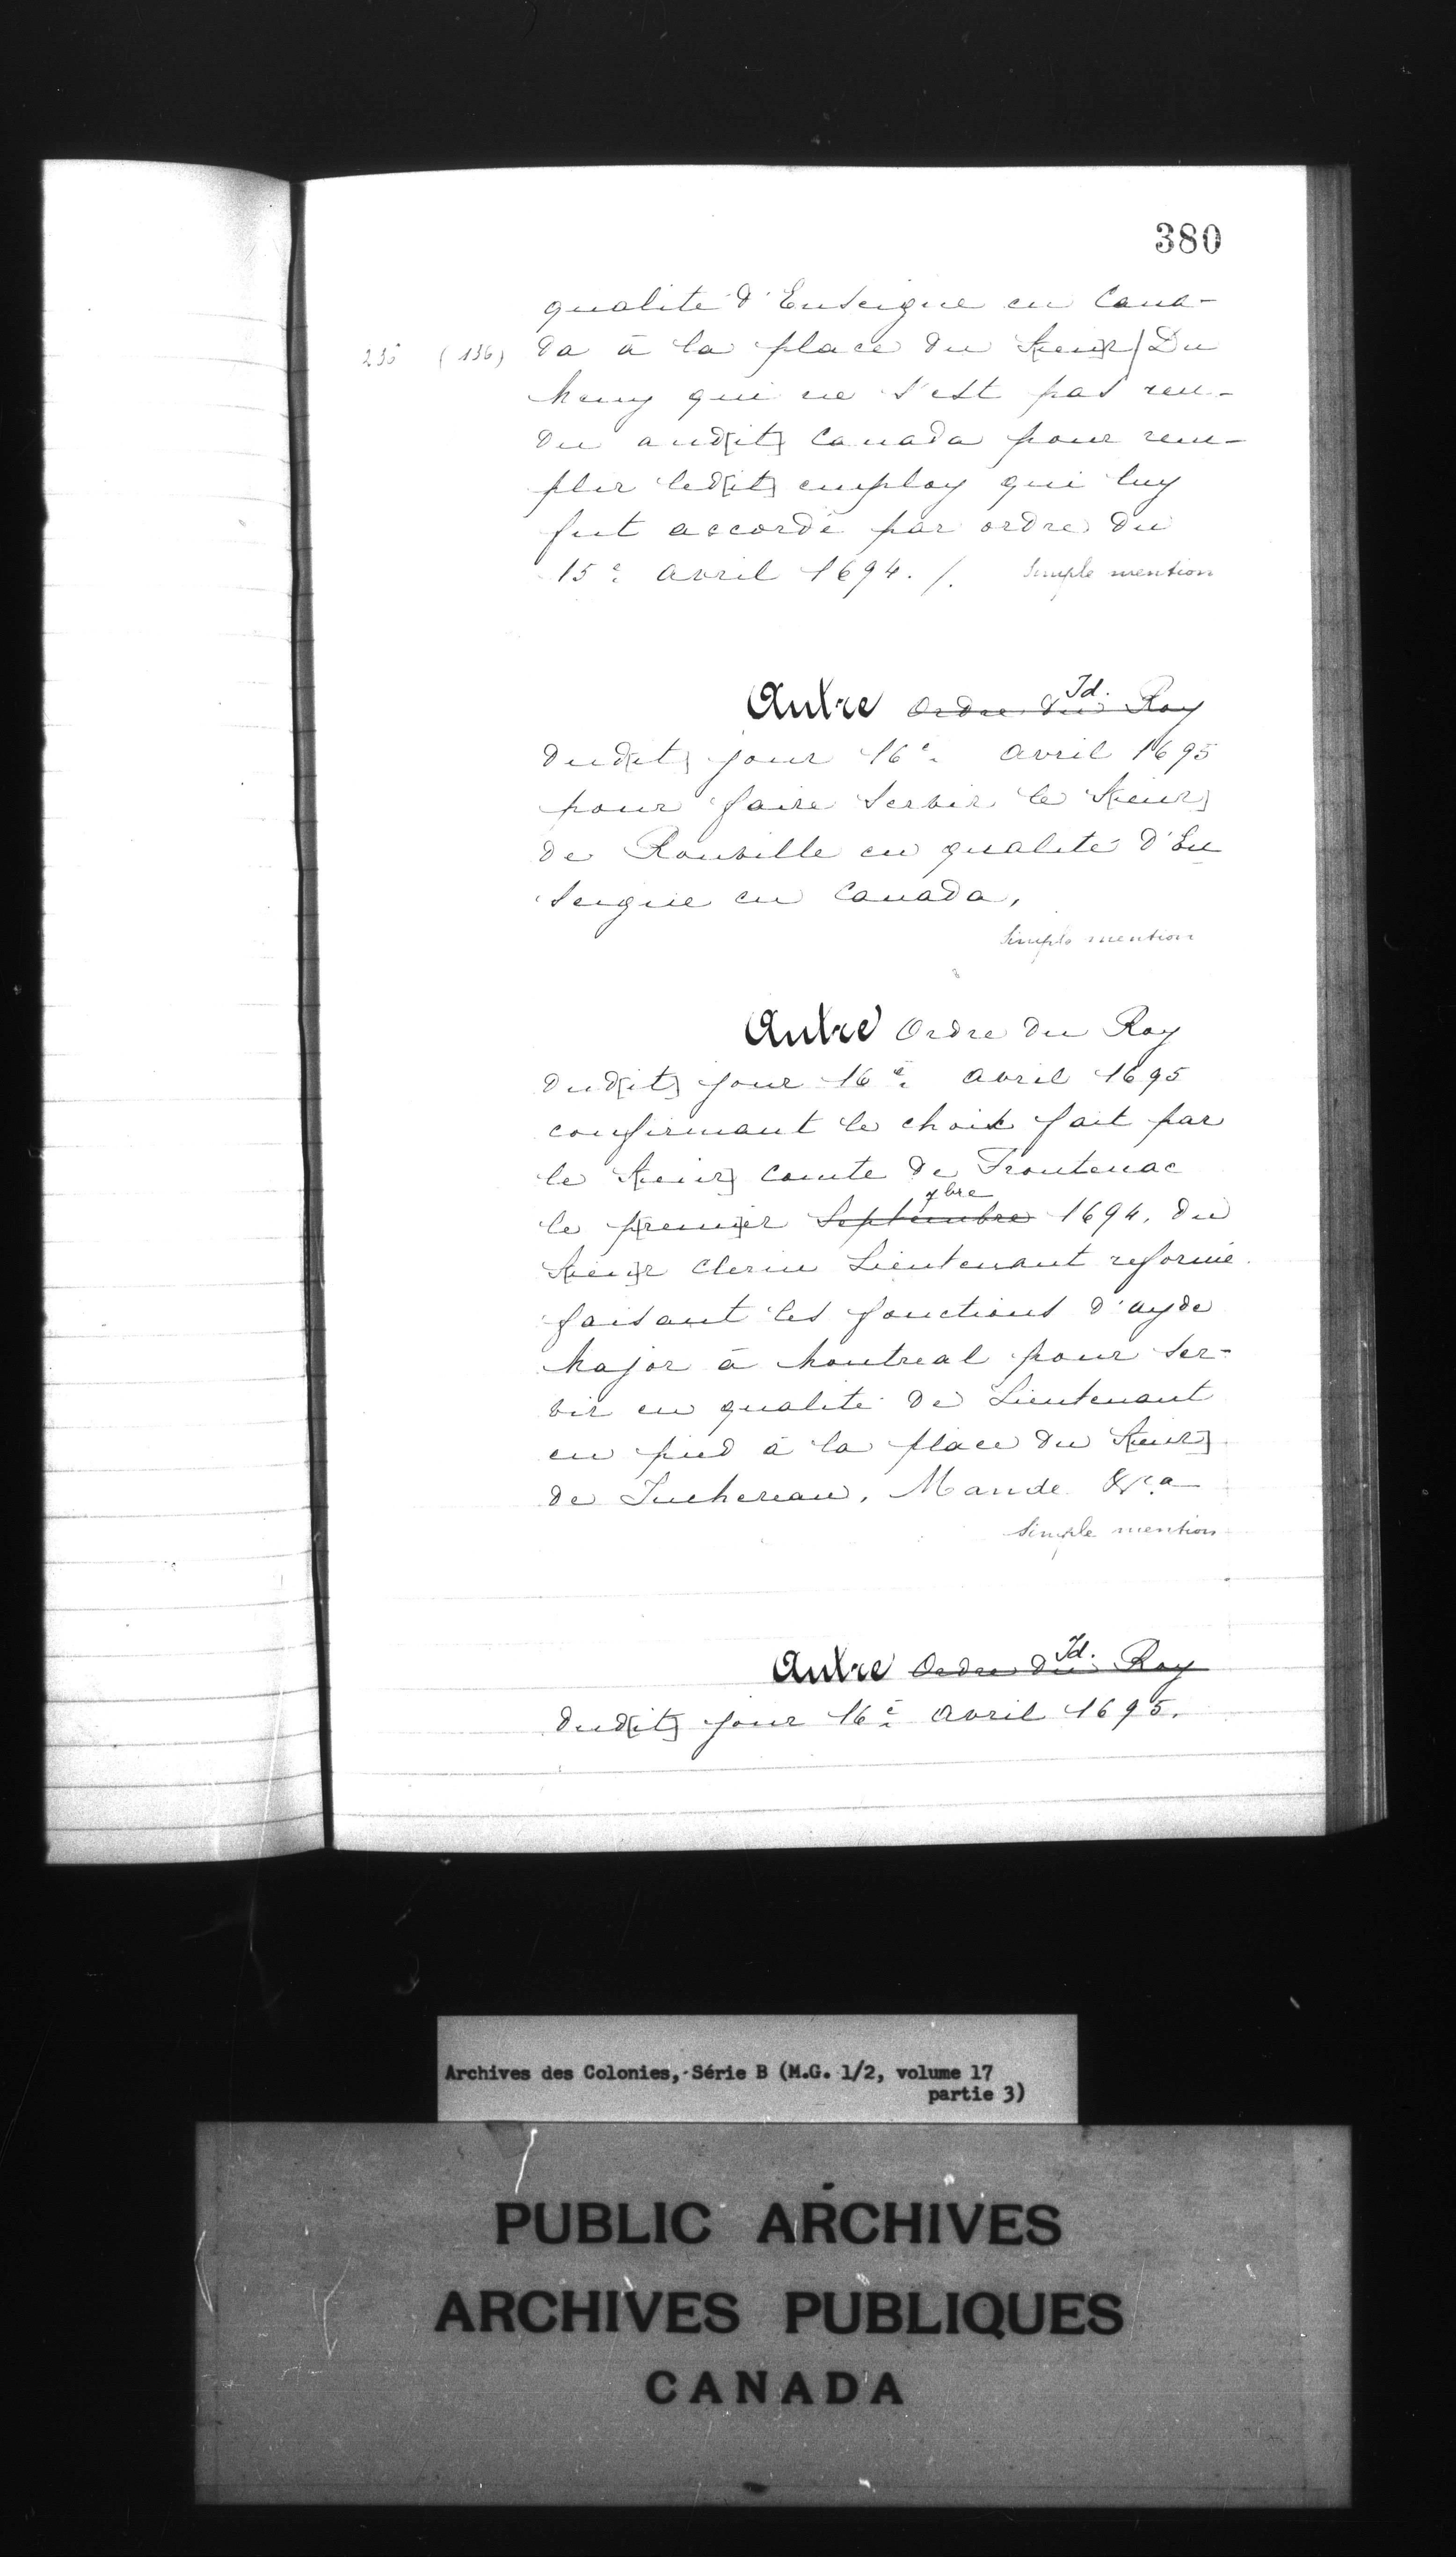 380
qualité d'Enseigne en Cana-
235 (136) da à la place du S[ieu]r / Du
Many qui ne s'est pas ren-
du aud[it] Canada pour rem-
plir led[it] employ qui luy
fut accordé par ordre du
15e avril 1694. /. Simple mention
Autre Ordre du Roy Id.
dud[it] jour 16e avril 1695
pour faire servir le S[ieur]
de Rouville en qualité d'En
seigne en Canada,
Simple mention
Autre Ordre du Roy
dud[it] jour 16e avril 1695
confirmant le choix fait par
le S[ieur] Comte de Frontenac
7bre
le p[remi]er Septembre 1694. du
S[ieu]r Clerin Lieutenant reformé
faisant les fonctions d'ayde
Major à Montreal pour ser-
vir en qualité de Lieutenant
en pied à la place du S[ieur]
de Juchereau, Mande &ca
Simple mention
Autre Ordre du Roy Id.
dud[it] jour 16e avril 1695.
Archives des Colonies, Série B (M.G. 1/2, volume 17
partie 3)
PUBLIC ARCHIVES
ARCHIVES PUBLIQUES
CANADA